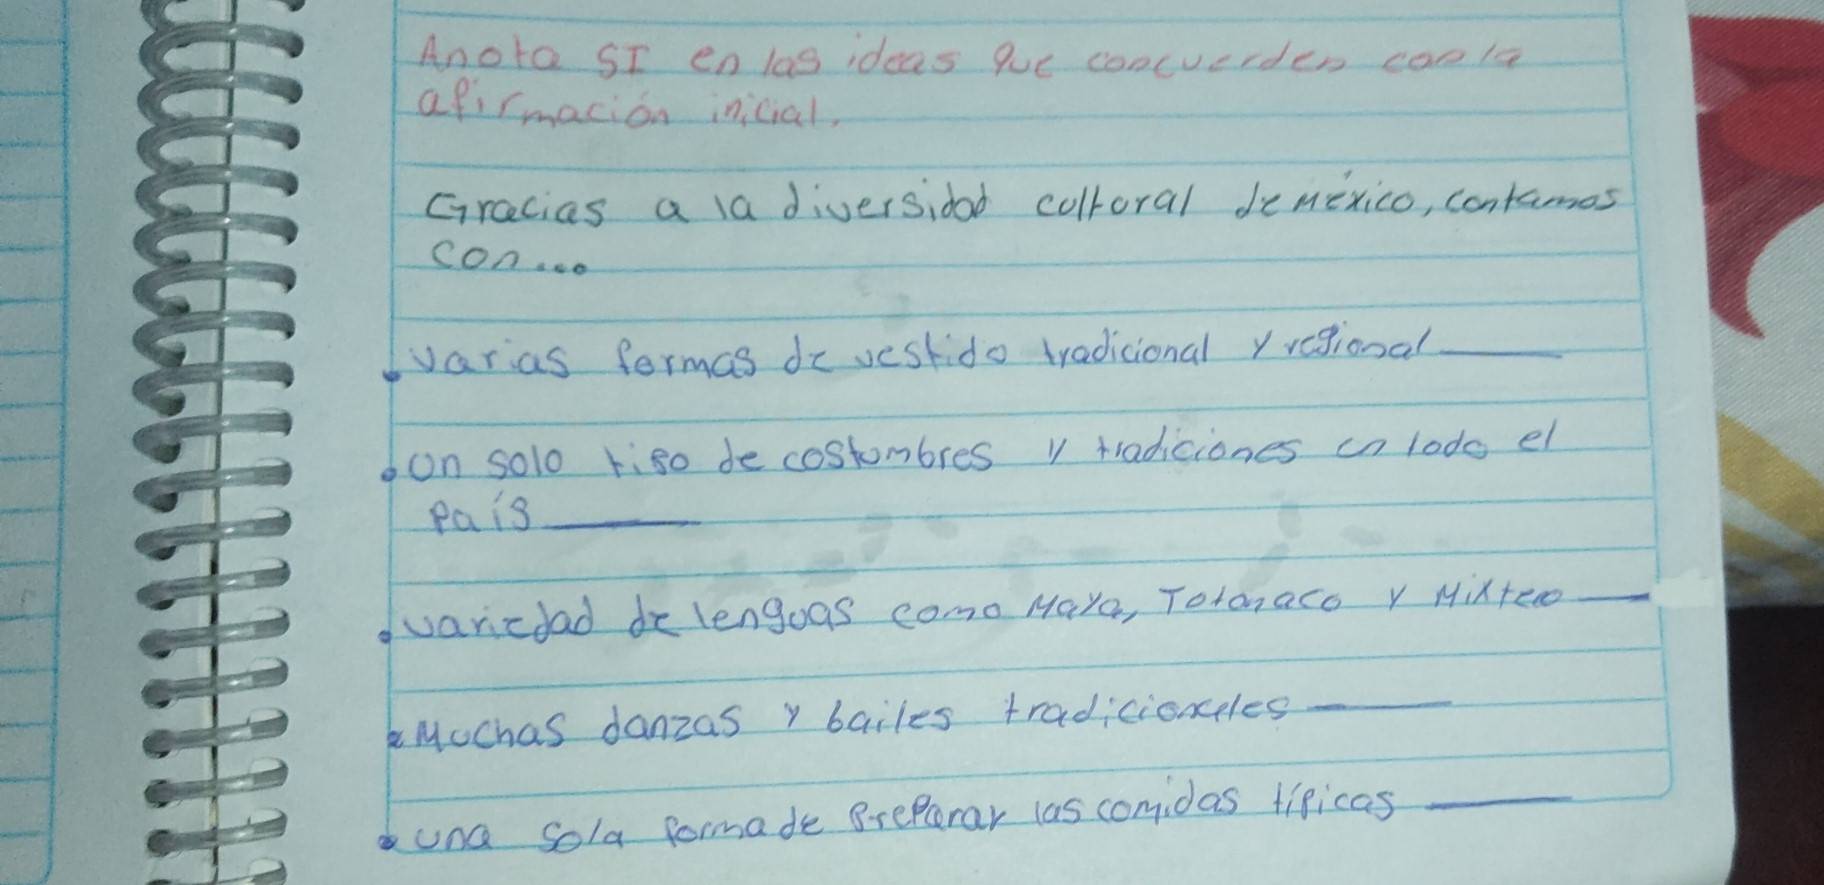 Anota SI en las ideas que concuerden con la
afirmación inicial.
Gracias a la diversidad coltoral de México, contamos
con...
varias formas de vestido tradicional y regional
Un solo tipo de costombres y tradiciones en todo el
País
variedad de lenguas como Maya, Totonaco y Mixteco
Muchas danzas y bailes tradicionales
una sola forma de preparar las comidas típicas